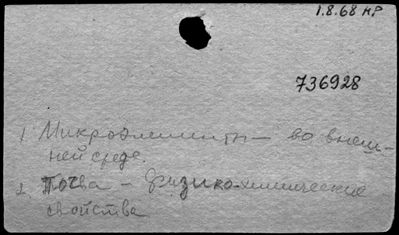 1.8.68 НР
736928
1. Микроэлементы – во внеш-
ней среде.
2. Почва – физико-химические
свойства